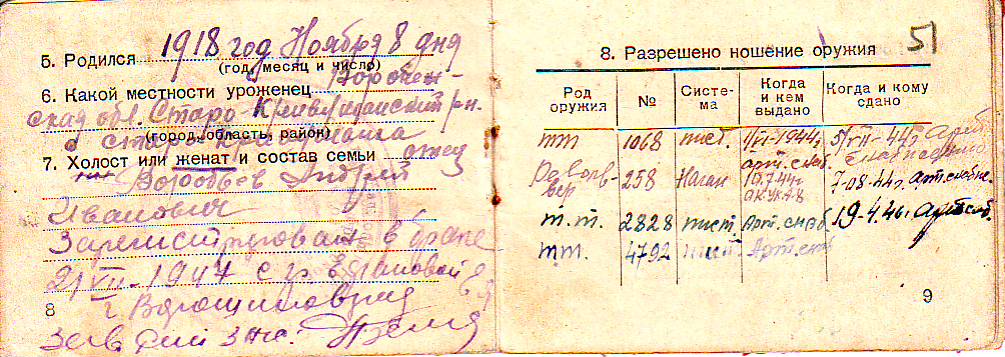 5. Родился 1918 год Ноября 8 дня
(год, месяц и число)
6. Какой местности уроженец Воронеж-
ская обл. Старо-Криушанский рн.
(город, область, район)
с Старо Криушанка
7. Холост или женат и состав семьи отец
Воробьев Андрей
Иванович
Зарегистрирован в браке
21/VII-1947 с гр.
г. Ворошиловград
8
8. Разрешено ношение оружия 51
Род оружия № Система Когда и кем выдано Когда и кому сдано
тт 1068 пист. 1/VI-1944г. арт. снаб. 5/VII-44г. Арт
Револьвер 258 Наган 10.7.44г. 7-08-44г. Арт.снабж.
т.т. 2828 пист. Арт снаб. 19-4.46г. Артснб.
тт. 4792 пист. Арт. снб
9